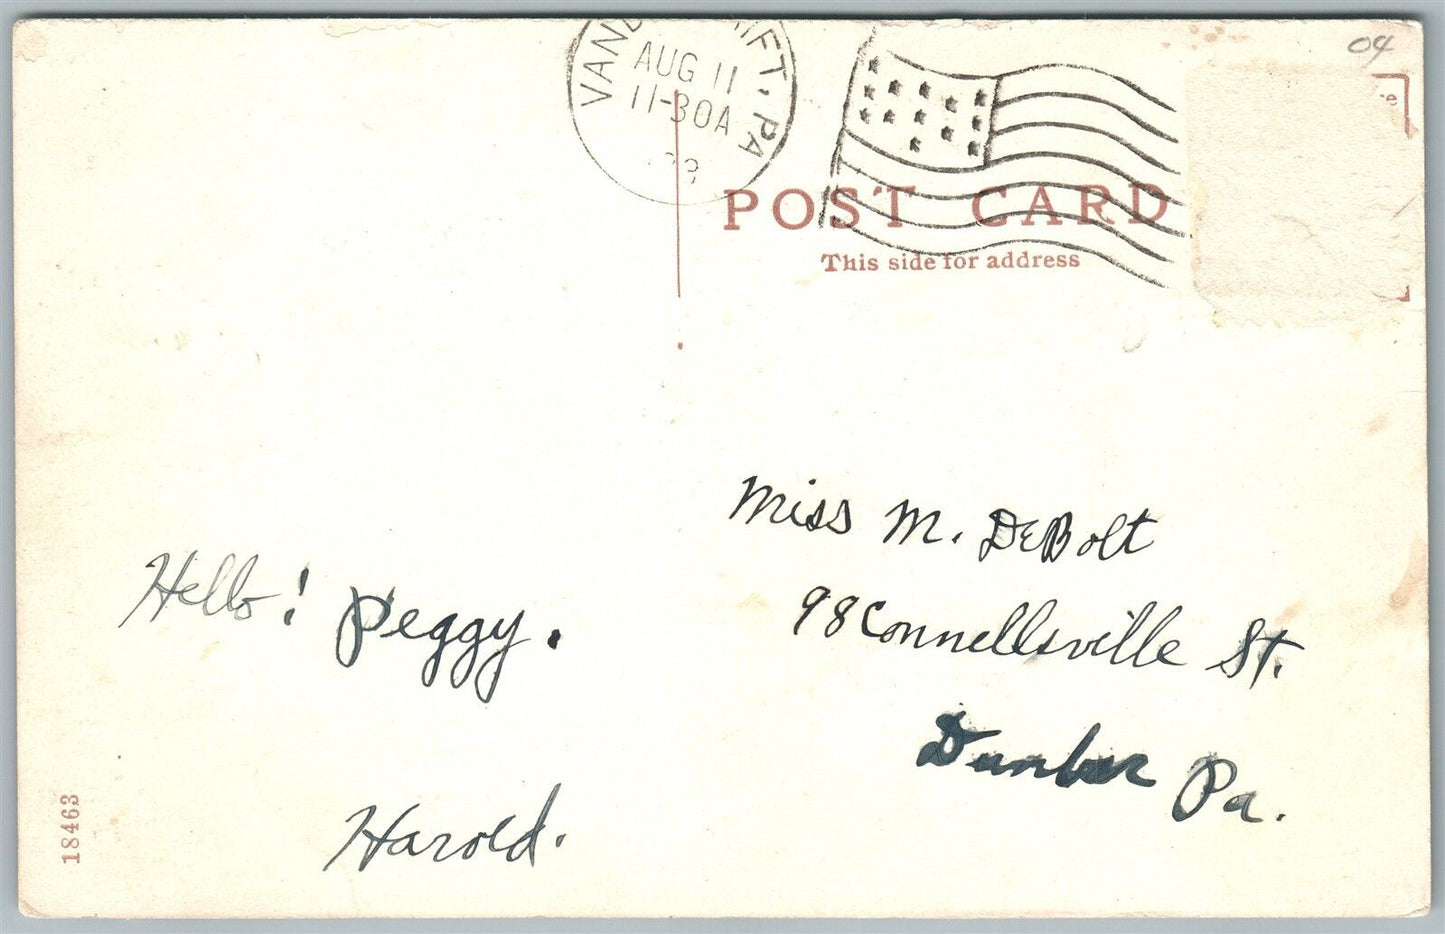 AUG 11
11-30A
PA
04
POST CARD
This side for address
Hello! Peggy.
Harold.
Miss M. DeBolt
98 Connellsville St.
Dunbar Pa.
18463